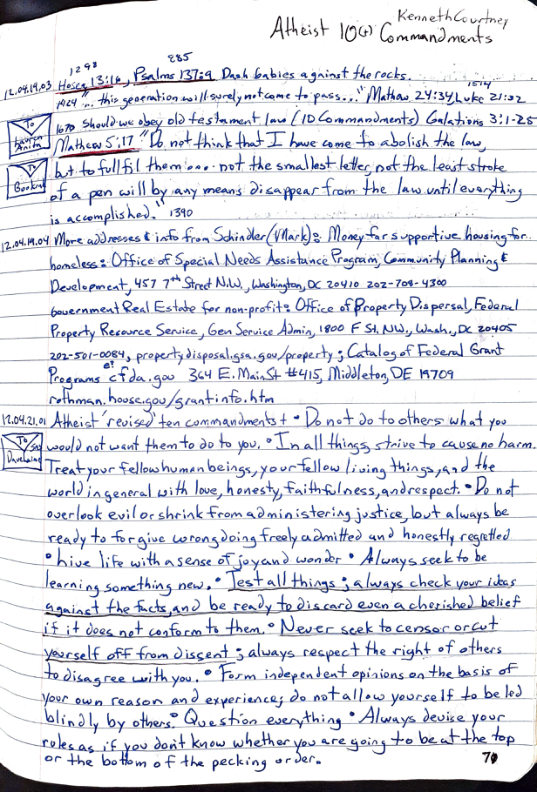 Kenneth Courtney
Atheist 10(+) Commandments
1298 285
12.04.19.03 Hosea 13:16, Psalms 137:9 Dash babies against the rocks.
1514
1464 "... this generation will surely not come to pass..." Mathew 24:34, Luke 21:32
1670 Should we obey old testament law (10 Commandments) Galations 3:1-25
To
Mathew 5:17 "Do not think that I have come to abolish the law,
but to fullfil them.... not the smallest letter, not the least stroke
To
of a pen will by any means disappear from the law until everything
is accomplished." 1390
12.04.19.04 More addresses & info from Schindler (VMark): Money for supportive housing for
homeless: Office of Special Needs Assistance Program, Community Planning &
Development, 457 7th Street N.W., Washington, DC 20410 202-708-4300
Government Real Estate for non-profit: Office of Property Dispersal, Federal
Property Resource Service, Gen Service Admin, 1800 F St, NW., Wash., DC 20405
202-501-0084, propertydisposal.gsa.gov/property; Catalog of Federal Grant
Programs @: cfda.gov 364 E. Main St #415, Middleton, DE 19709
rothman.house.gov/grantinfo.htm
12.04.21.01 Atheist 'revised' ten commandments + • Do not do to others what you
To
would not want them to do to you. • In all things, strive to cause no harm.
Treat your fellow human beings, your fellow living things, and the
world in general with love, honesty, faithfulness, and respect. • Do not
overlook evil or shrink from administering justice, but always be
ready to forgive wrongdoing freely admitted and honestly regretted
• Live life with a sense of joy and wonder • Always seek to be
learning something new. • Test all things; always check your ideas
against the facts, and be ready to discard even a cherished belief
if it does not conform to them. • Never seek to censor or cut
yourself off from dissent; always respect the right of others
to disagree with you. • Form independent opinions on the basis of
your own reason and experience; do not allow yourself to be led
blindly by others. • Question everything • Always devise your
rules as if you don't know whether you are going to be at the top
or the bottom of the pecking order.